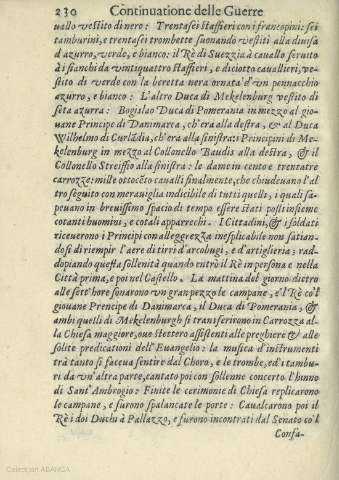 230 Continuatione delle Guerre
uallo vestito di nero: Trentasei staffieri con i francopini: sei
tamburini, e trentasei trombette suonando vestiti alla diuisa
d'azurro, verde, e bianco: il Rè di Suezzia à cauallo seruito
à i fianchi da vintiquatro staffieri, e diciotto cauallieri, ve-
stito di verde con la beretta nera ornata d'vn pennacchio
azurro, e bianco: L'altro Duca di Mekelenburg vestito di
seta azurra: Bogislao Duca di Pomerania in mezzo al gio-
uane Principe di Danimarca, ch'era alla destra, & al Duca
Wilhelmo di Curlãdia, ch'era alla sinistra: i Principini di Me-
kelenburg in mezzo al Collonello Baudis alla destra, & il
Collonello Streiffio alla sinistra: le dame in cento e trentatre
carrozze: mille ottocẽto caualli finalmente, che chiudeuano l'al
tro seguito con merauiglia indicibile di tutti quelli, i quali sa-
peuano in breuissimo spacio di tempo essere stati posti insieme
cotanti huomini, e cotali apparecchi. I Cittadini, & i soldati
riceuerono i Principi con allegrezza inesplicabile non satian-
dosi di riempir l'aere di tirri d'arcobugi, e d'artiglieria; rad-
dopiando questa sollenità quando entrò il Rè in persona e nella
Città prima, e poi nel Castello. La mattina del giorno dietro
alle sett'hore sonarono vn gran pezzo le campane, e'l Rè co'l
giouane Prencipe di Danimarca, il Duca di Pomerania, &
ambi quelli di Mekelenburgh si transferirono in Carrozza al-
la Chiesa maggiore, oue stettero assistenti alle preghiere & alle
solite predicationi dell'Euangelio: la musica d'instrumenti
trà tanto si facęua sentire dal Choro, e le trombe, ed i tambu-
ri da vn'altra parte, cantato poi con sollenne concerto l'hinno
di Sant'Ambrogio: Finite le cerimonie di Chiesa replicarono
le campane, e furono spalancate le porte: Caualcarono poi il
Rè i doi Duchi à Pallazzo, e furono incontrati dal Senato co'l
Consa-
Colección ABANCA